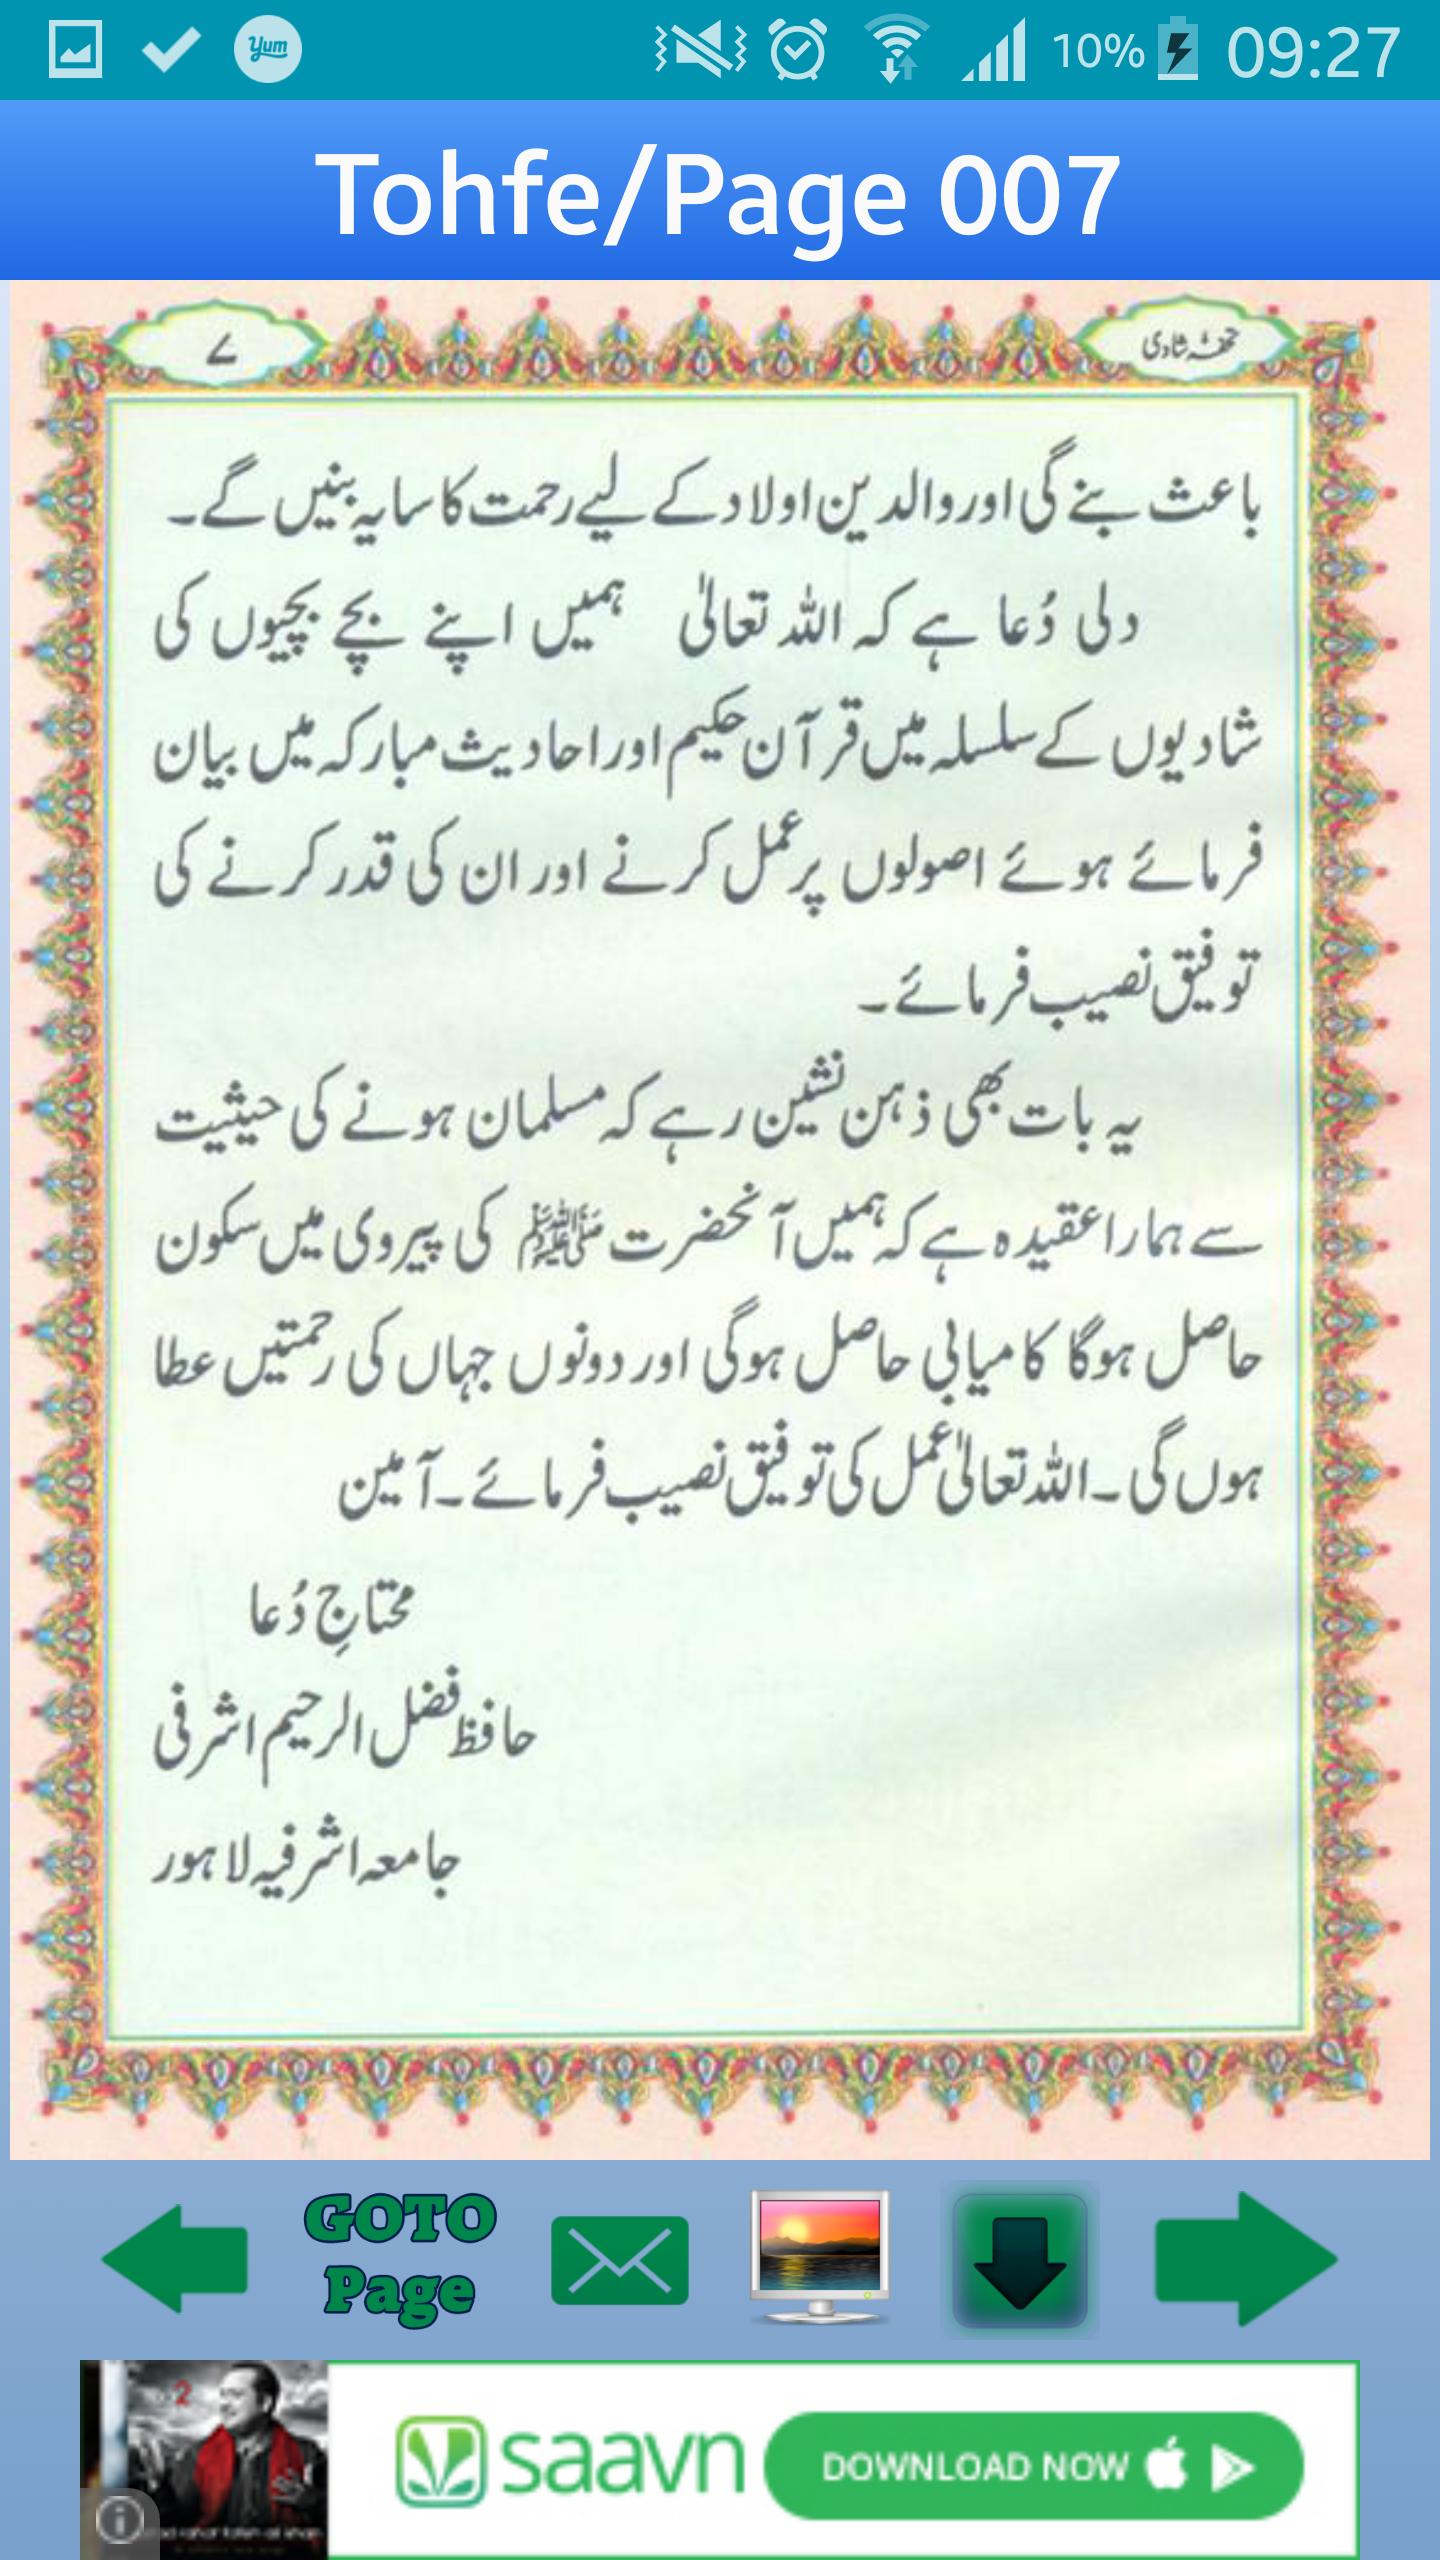 Yum 10% 09:27
Tohfe/Page 007
تحفۂ شادی ۷
باعث بنے گی اور والدین اولاد کے لیے رحمت کا سایہ بنیں گے۔
دلی دُعا ہے کہ اللہ تعالیٰ ہمیں اپنے بچے بچیوں کی
شادیوں کے سلسلہ میں قرآن حکیم اور احادیث مبارکہ میں بیان
فرمائے ہوئے اصولوں پر عمل کرنے اور ان کی قدر کرنے کی
توفیق نصیب فرمائے۔
یہ بات بھی ذہن نشین رہے کہ مسلمان ہونے کی حیثیت
سے ہمارا عقیدہ ہے کہ ہمیں آنحضرت ﷺ کی پیروی میں سکون
حاصل ہوگا کامیابی حاصل ہوگی اور دونوں جہاں کی رحمتیں عطا
ہوں گی۔ اللہ تعالیٰ عمل کی توفیق نصیب فرمائے۔ آمین
محتاجِ دُعا
حافظ فضل الرحیم اشرفی
جامعہ اشرفیہ لاہور
GOTO
Page
2
saavn DOWNLOAD NOW